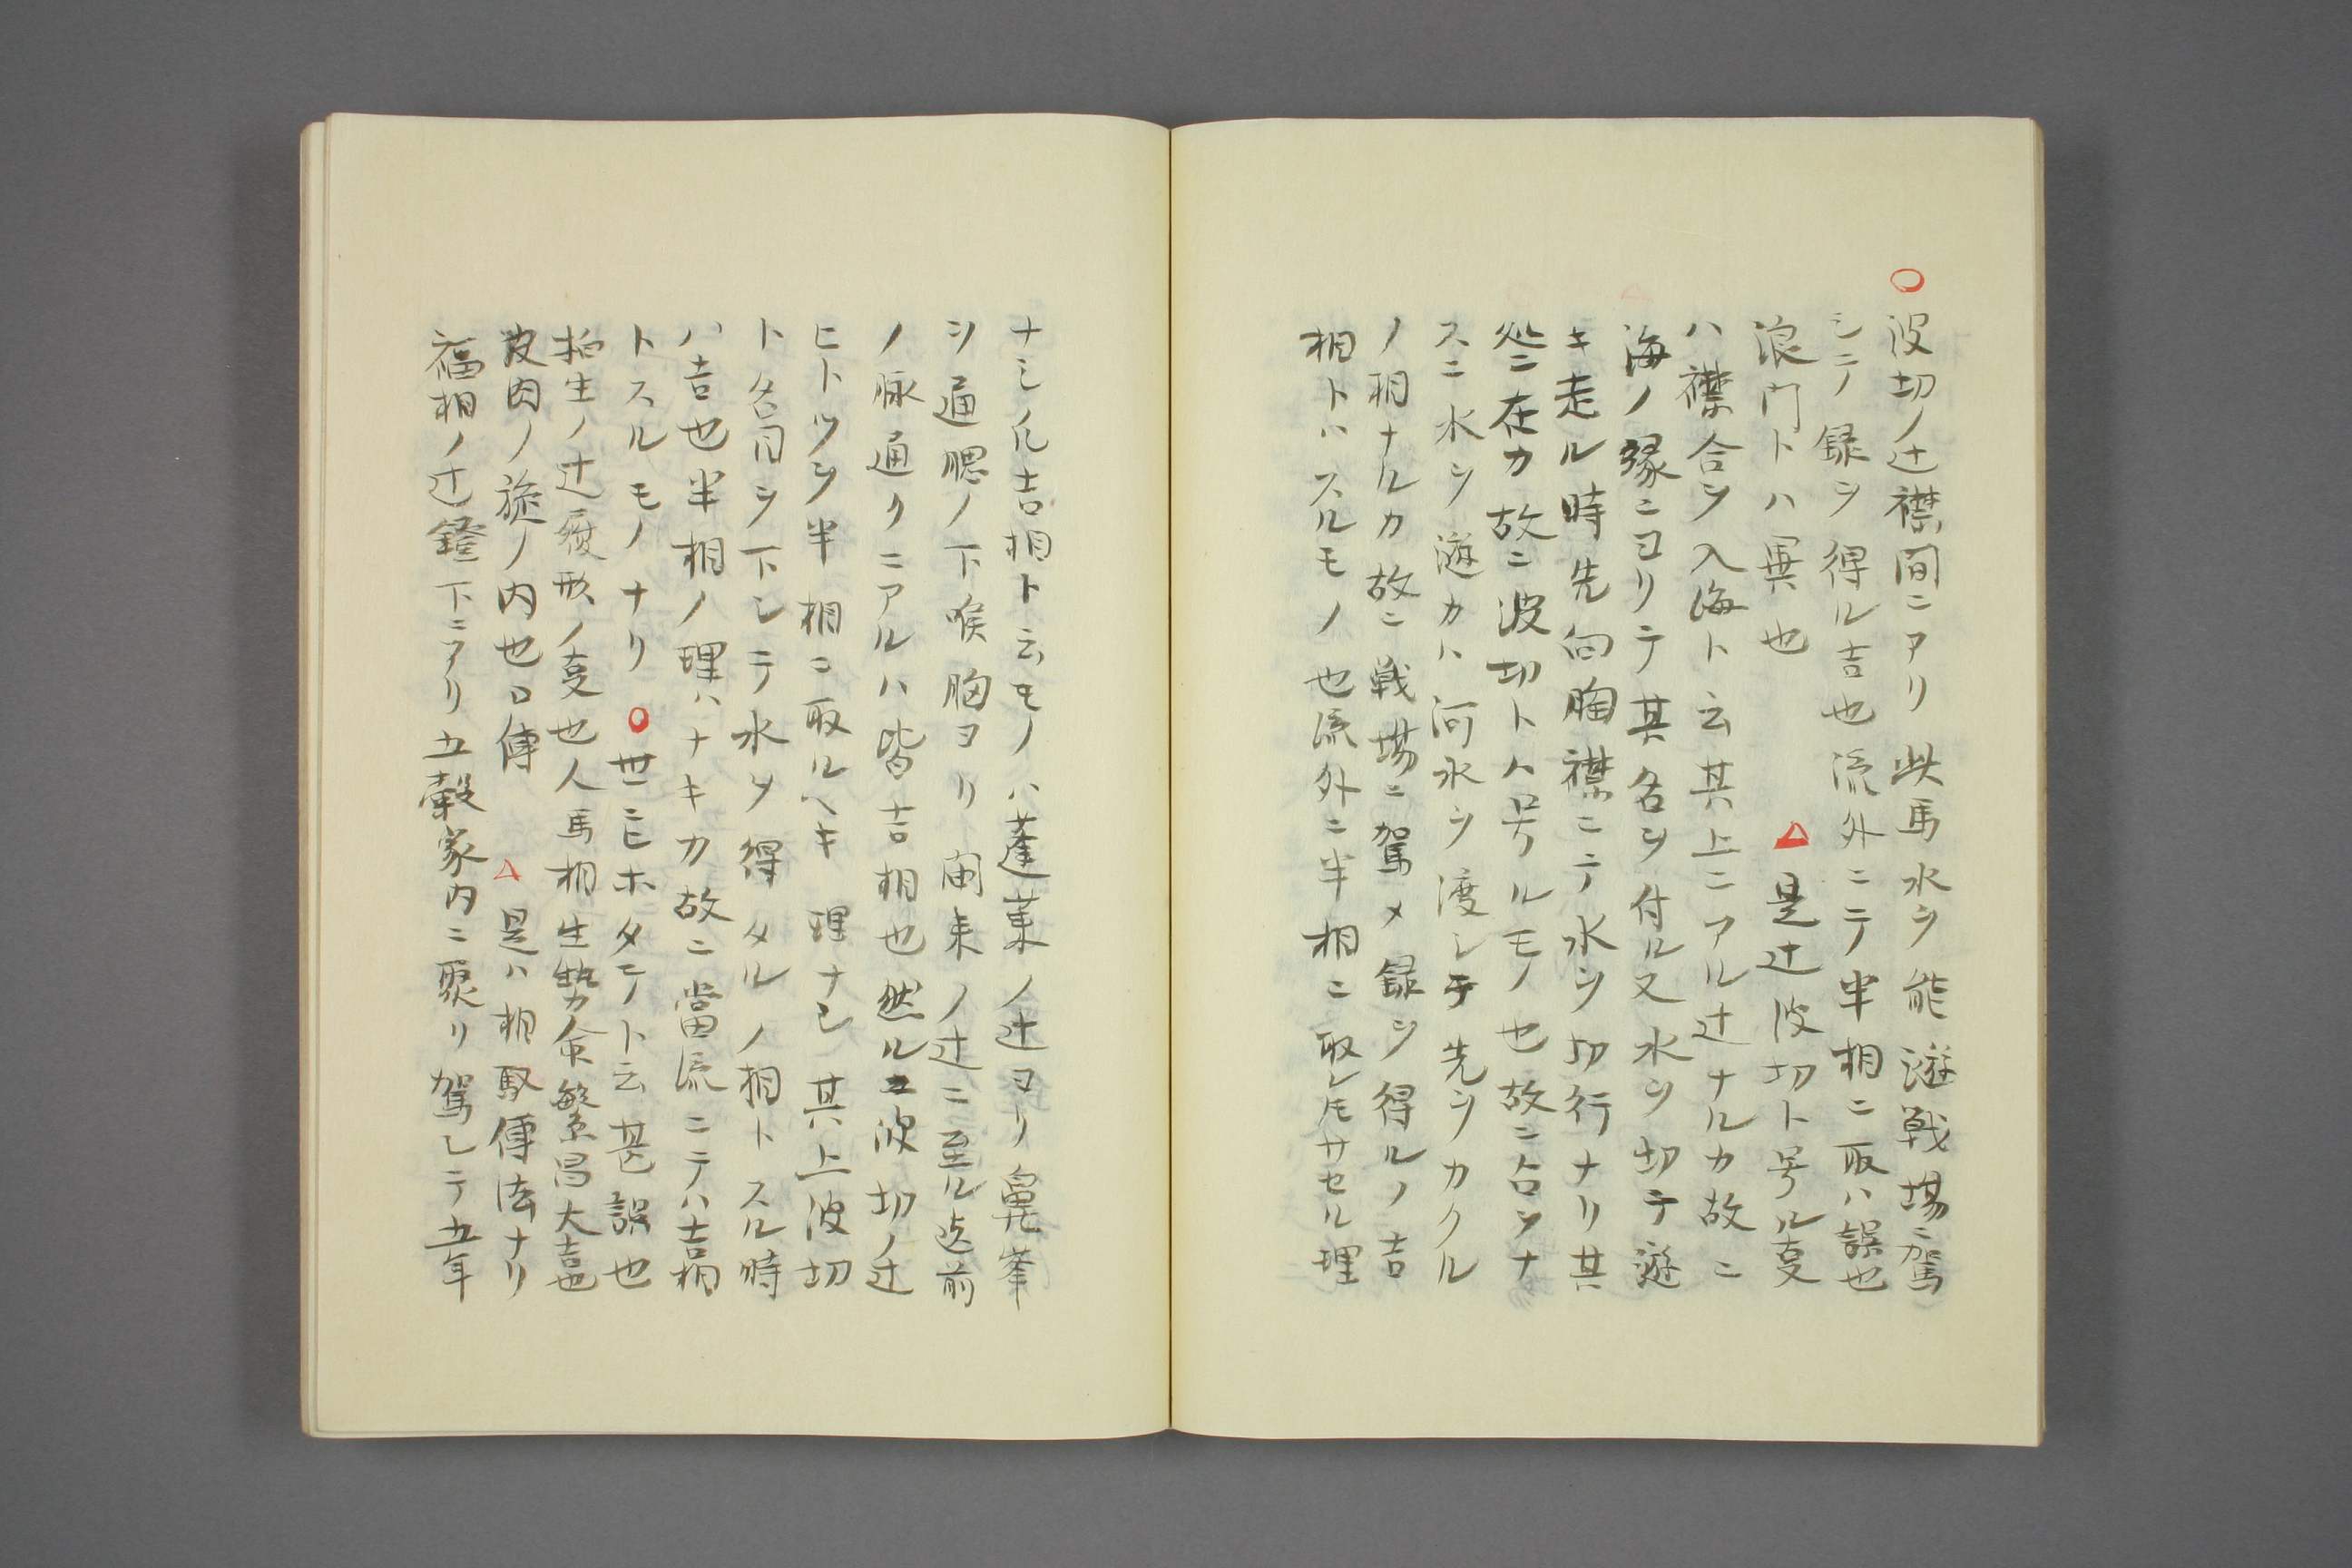 ○波切ノ辻襟間ニアリ此馬水ヲ能游戦場ニ駕
シテ録ヲ得ル吉也流外ニテ半相ニ取ハ誤也
浪門トハ異也 △是辻波切ト号ル㕝
ハ襟合ヲ入海ト云其上ニアル辻ナルカ故ニ
海ノ縁ニヨリテ其名ヲ付ル又水ヲ切テ游
キ走ル時先向胸襟ニテ水ヲ切行ナリ其
処ニ在カ故ニ波切トハ号ルモノ也故ニ合ヲナ
スニ水ヲ游カハ河水ヲ渡シテ先ヲカクル
ノ相ナルカ故ニ戦場ニ駕メ録ヲ得ルノ吉
相トハスルモノ也流外ニ半相ニ取レ𪜈サセル理
ナシ凡吉相ト云モノハ蓬莱ノ辻ヨリ鼻峯
ヲ通腮ノ下喉胸ヨリ開耒ノ辻ニ至ル迄前
ノ脉通リニアルハ皆吉相也然ルヱ波切ノ辻
ヒトツヲ半相ニ取ルヘキ理ナシ其上波切
ト名目ヲ下シテ水ヲ得タルノ相トスル時
ハ吉也半相ノ理ハナキカ故ニ當流ニテハ吉相
トスルモノナリ ○世ニヒホタテト云甚誤也
相生ノ辻癈形ノ㕝也人馬相生勢命繁昌大吉也
皮肉ノ旋ノ内也口傳 △是ハ相馭傳法ナリ
福相ノ辻鐙下ニアリ五穀家内ニ聚リ駕シテ五年